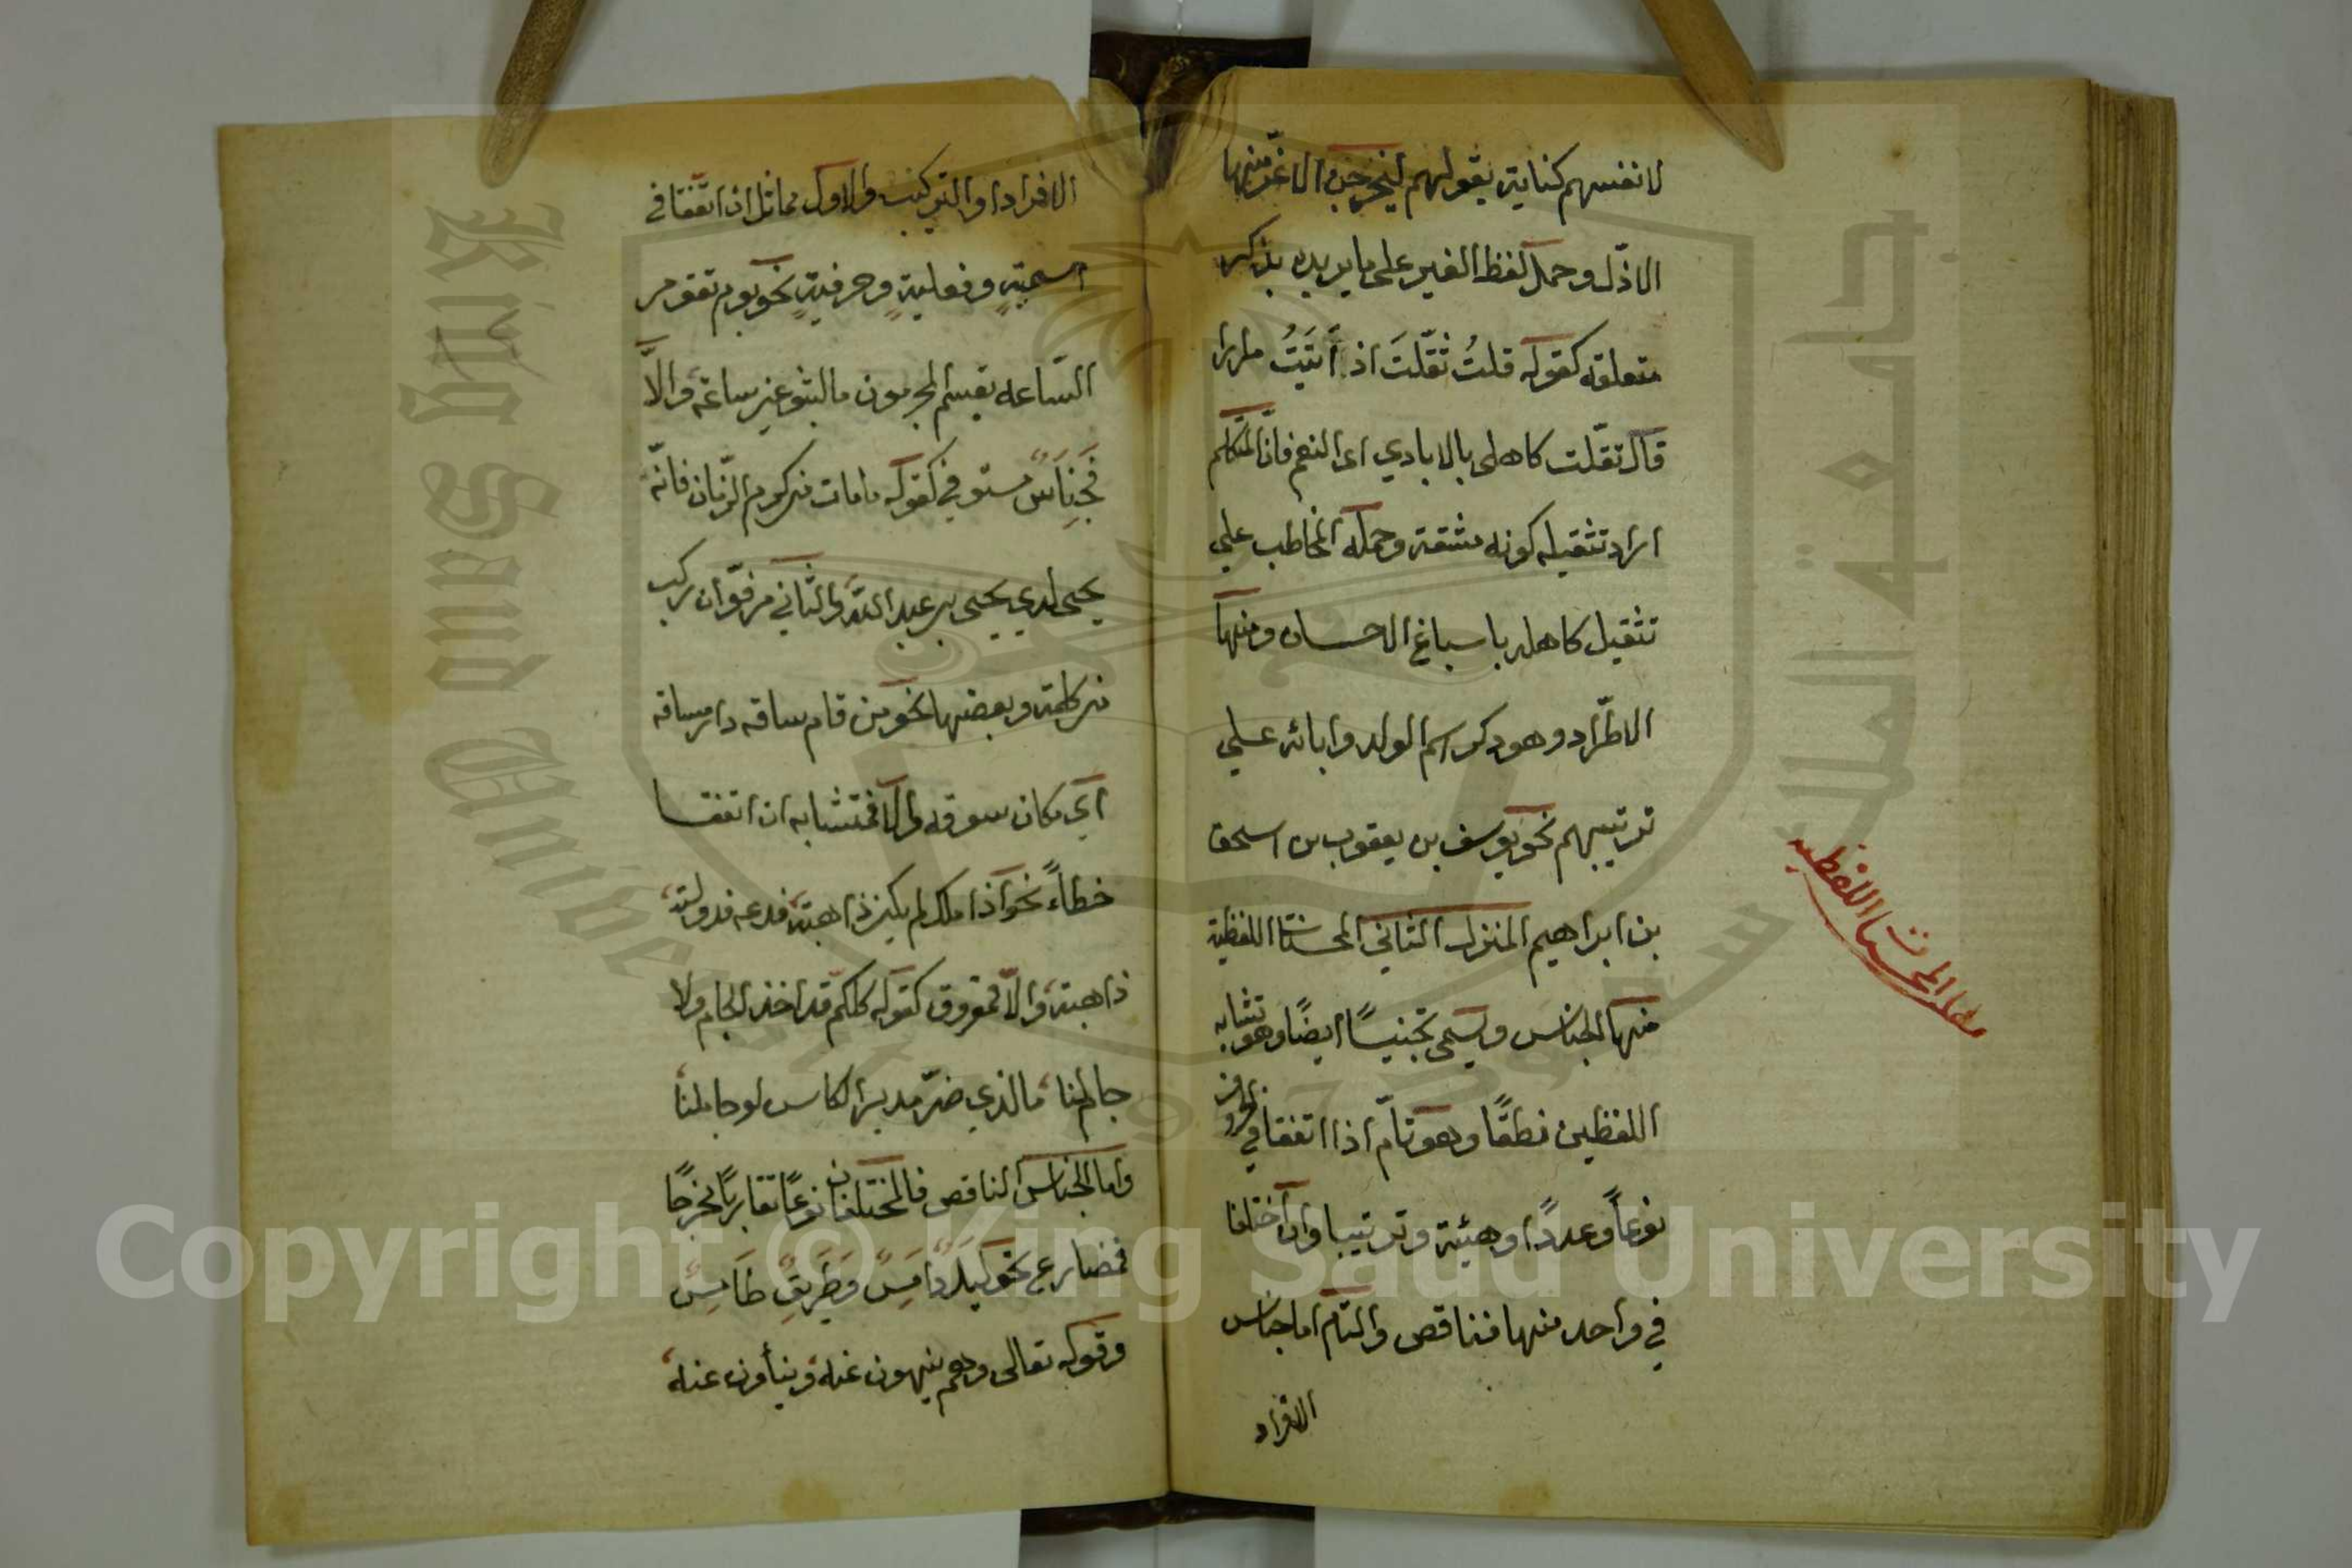 لانفسهم كناية بقولهم ليخرجن الاعز منها
الاذل وحمل لفظ الغير على ما يريده بذكر
متعلقه كقوله قلتُ ثقّلتَ اذ أتيتُ مرارا
قال ثقّلت كاهلى بالايادي اى النعم فانّ المتكلم
اراد تثقيله كونه مشقة وحمله المخاطب علي
تثقيل كاهله باسباغ الاحسان ومنها
الاطّراد وهو ذكر اسم الولد وابائه علي
ترتيبهم نحو يوسف بن يعقوب بن اسحق
بن ابراهيم المنزل الثاني المحسنات اللفظية
منها الجناس ويسمى تجنيسًا ايضًا وهو تشابه
اللفظين نطقًا وهو تامّ اذا اتفقا في الحروف
نوعاً وعددًا وهيئة وترتيبا وان اختلفا
في واحد منها فناقص والتام اما جناس
الافراد
المحسنات اللفظيه
الافراد او التركيب والاول مماثل ان اتفقا في
اسميةٍ وفعليةٍ وحرفيةٍ نحو يوم تقوم
السّاعه يقسم المجرمون ما لبثو غير ساعة والاّ
فجناسٌ مستوفي كقوله ما مات من كرم الزمان فانّه
يحيى لدي يحيى بن عبد الله والثّاني مرفوّ ان ركب
من كلمة وبعضها نحو من قام ساقه دار مساقه
اي مكان سوقه والا فمتشابه ان اتفقا
خطاً نحو اذا ملك لم يكن ذا هبة فدعه فدولته
ذاهبة والاّ فمفروق كقوله كلكم قد اخذ الجام ولا
جام لنا ما الذي ضرّ مدير الكاس لو جاملنا
واما الجناس الناقص فالمختلفان نوعًا تقاربًا مخرجًا
فمضارع نحو ليل دامس وطريق طامس
وقوله تعالى وهم ينهون عنه وينأون عنه
King Saud University
جامعة الملك سعود
1957
Copyright © King Saud University